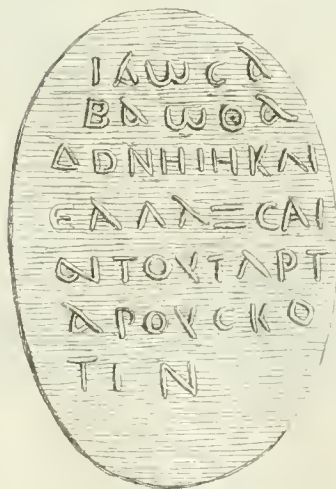 ΙΑωϹΑ
ΒΑωΘΑ
ΔDΝΗΙΗΚΑΙ
ϾΑΛΑΞϹΑΙ
ΑΙΤΟΥΤΑΡΤ
ΑΡΟΥϹΚΟ
ΤΙΝ